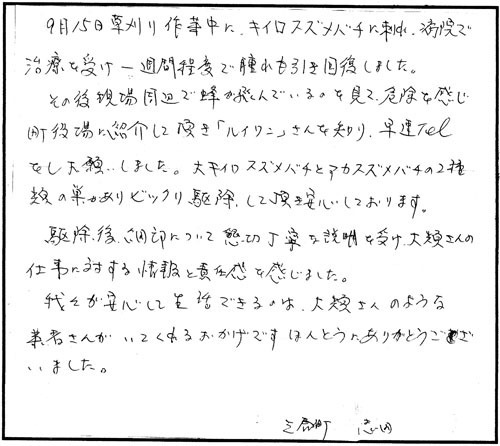 9月15日草刈り作業中に、キイロスズメバチに刺れ、病院で
治療を受け一週間程度で腫れも引き回復しました。
その後現場周辺で蜂が飛んでいるのを見て、危険を感じ
町役場に紹介して頂き「ルイワン」さんを知り、早速Tel
をし大願いしました。大キイロスズメバチとアカスズメバチの2種
類の巣がありビックリ駆除して頂き安心しております。
駆除後、細部について懇切丁寧な説明を受け、大類さんの
仕事に対する情報と責任感を感じました。
我々が安心して生活できるのは、大類さんのような
業者さんがいてくれるおかげです ほんとうにありがとうござ
いました。
町 志田